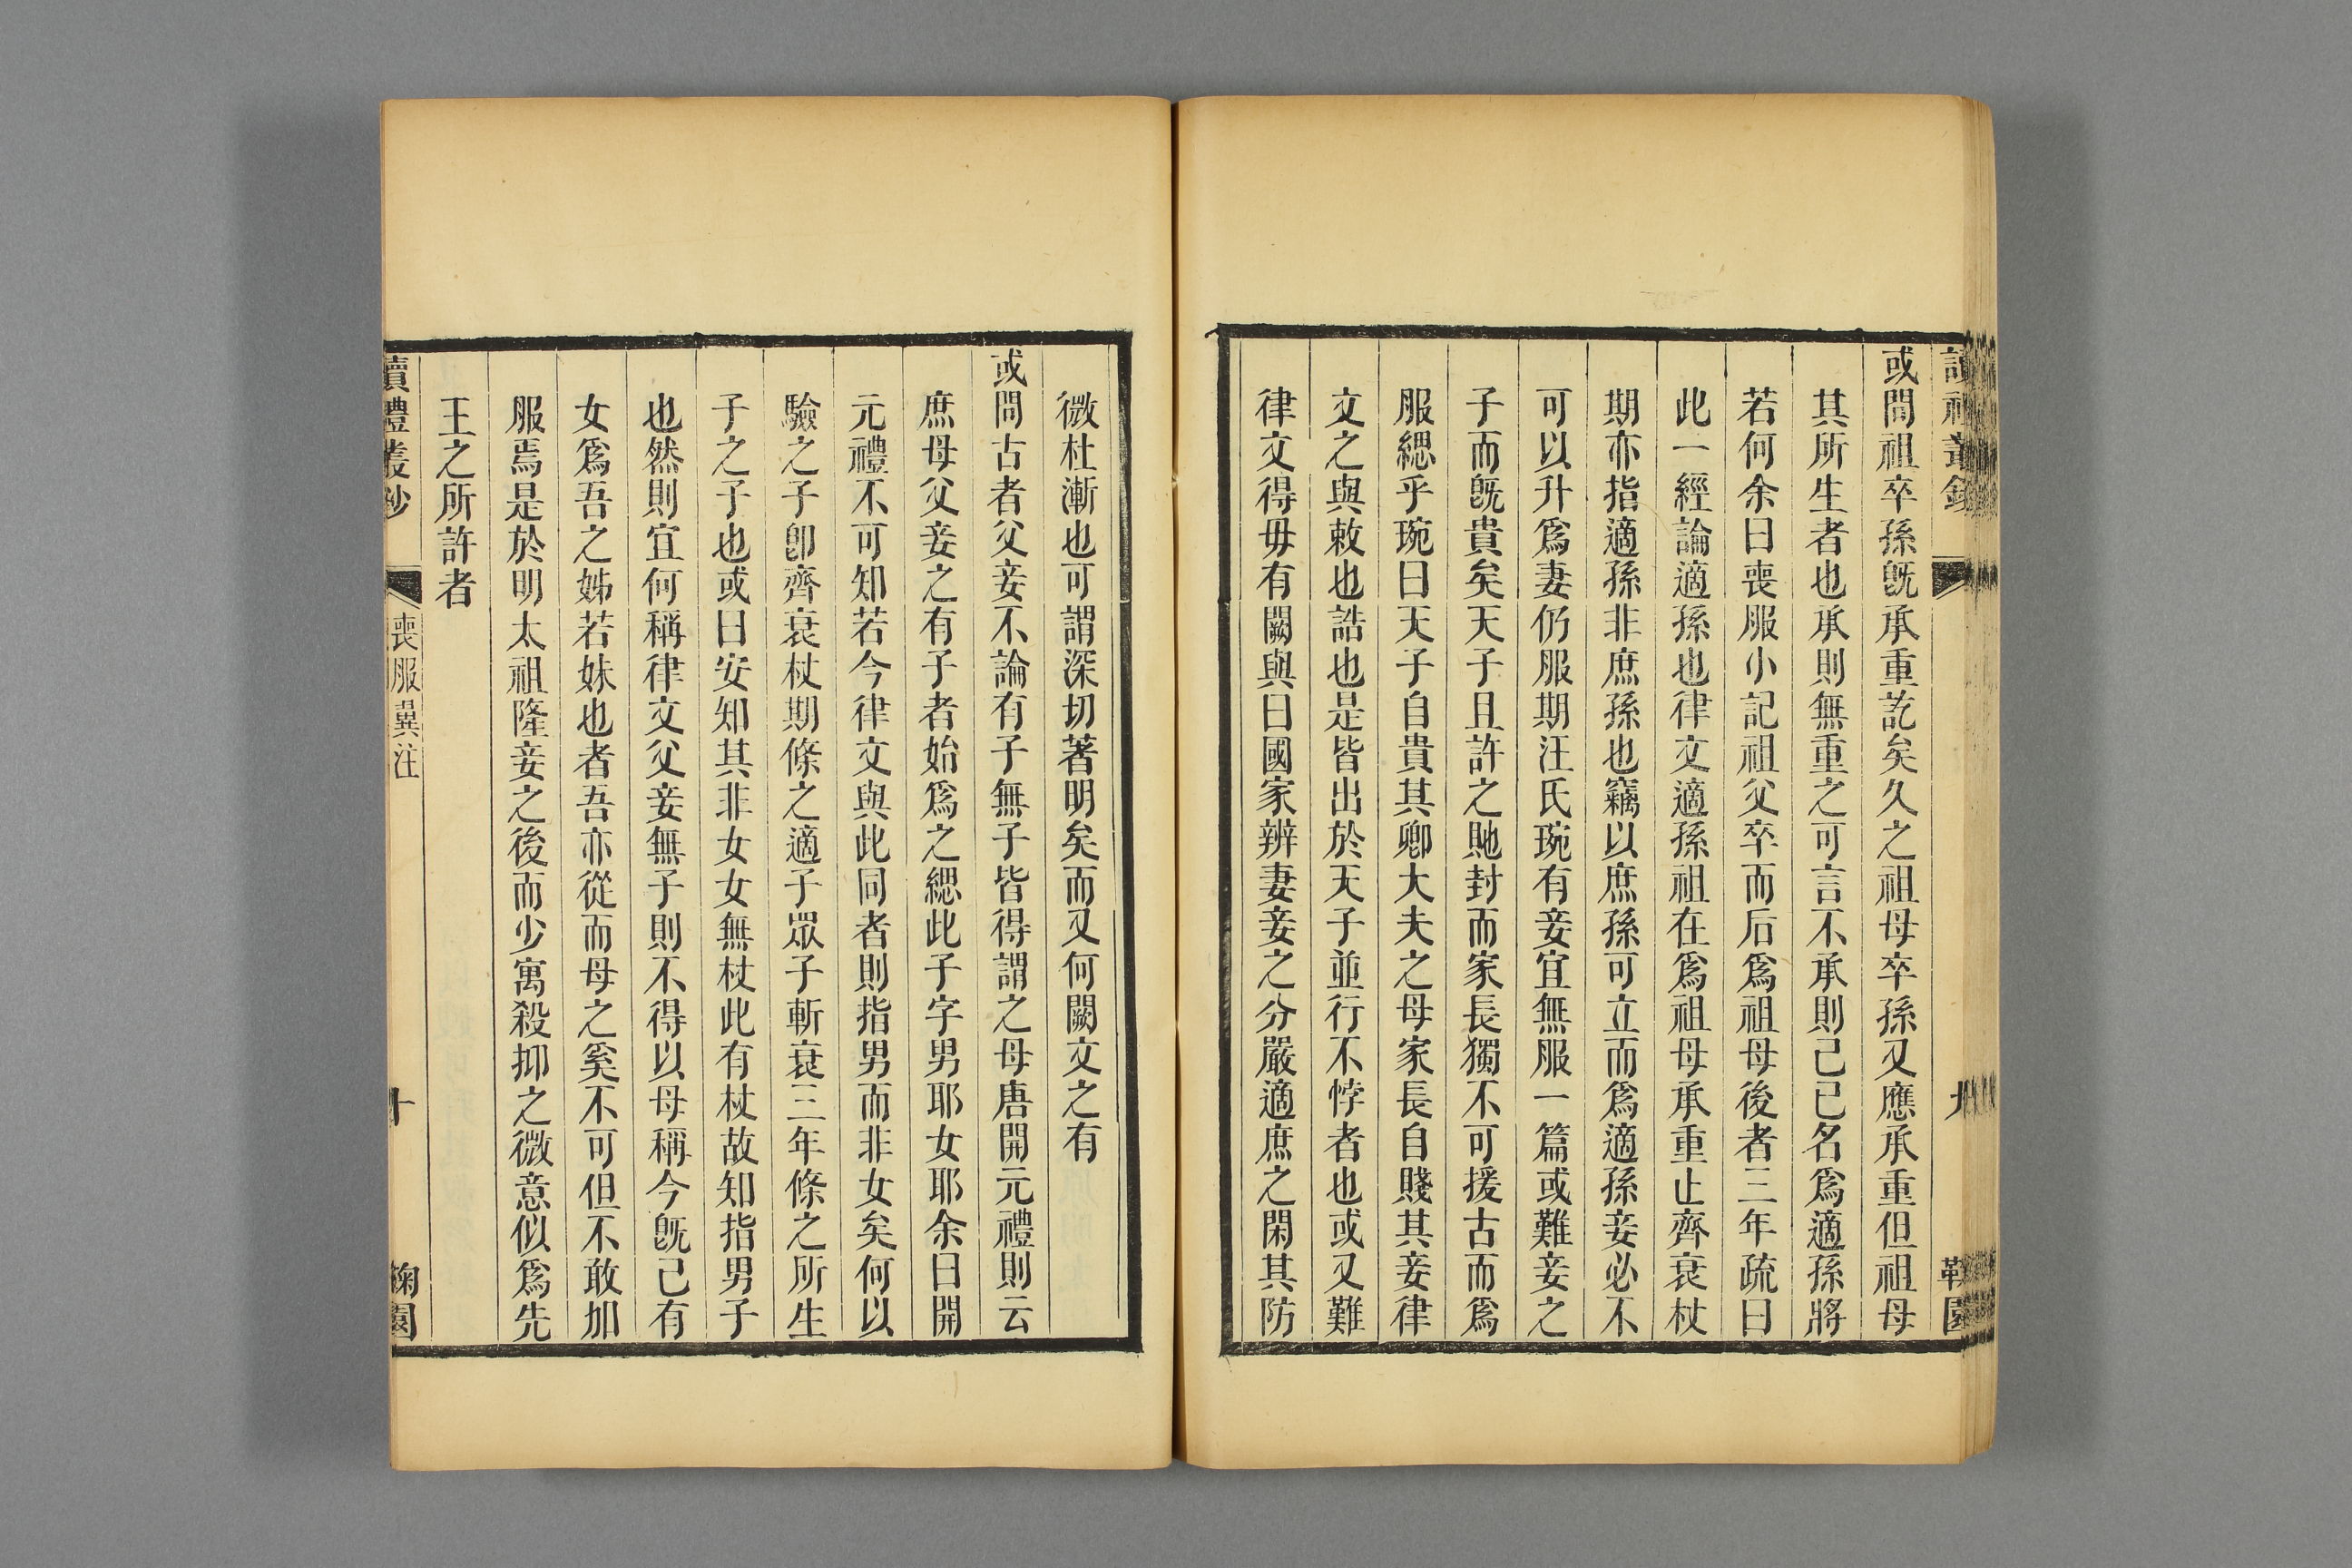 或問祖卒孫旣承重訖矣久之祖母卒孫又應承重但祖母
其所生者也承則無重之可言不承則己已名爲適孫將
若何余曰喪服小記祖父卒而后爲祖母後者三年疏曰
此一經論適孫也律文適孫祖在爲祖母承重止齊衰杖
期亦指適孫非庶孫也竊以庶孫可立而爲適孫妾必不
可以升爲妻仍服期汪氏琬有妾宜無服一篇或難妾之
子而旣貴矣天子且許之貤封而家長獨不可援古而爲
服緦乎琬曰天子自貴其卿大夫之母家長自賤其妾律
文之與敕也誥也是皆出於天子並行不悖者也或又難
律文得毋有闕與曰國家辨妻妾之分嚴適庶之閑其防
微杜漸也可謂深切著明矣而又何闕文之有
或問古者父妾不論有子無子皆得謂之母唐開元禮則云
庶母父妾之有子者始爲之緦此子字男耶女耶余曰開
元禮不可知若今律文與此同者則指男而非女矣何以
驗之子卽齊衰杖期條之適子眾子斬衰三年條之所生
子之子也或曰安知其非女女無杖此有杖故知指男子
也然則宜何稱律文父妾無子則不得以母稱今旣已有
女爲吾之姊若妹也者吾亦從而母之奚不可但不敢加
服焉是於明太祖隆妾之後而少寓殺抑之微意似爲先
王之所許者
讀禮叢鈔
喪服異注
十
鞠園